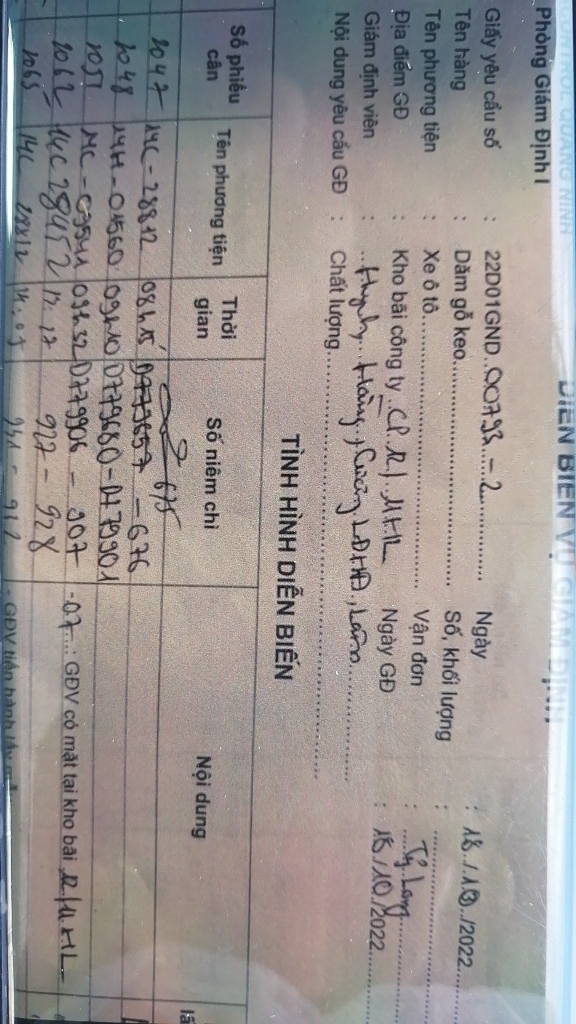 CONTROL QUẢNG NINH
Phòng Giám Định I
DIỄN BIẾN VỤ GIÁM ĐỊNH
Giấy yêu cầu số : 22D01GND..00793.-.2 Ngày : 18../10../2022
Tên hàng : Dăm gỗ keo Số, khối lượng :
Tên phương tiện : Xe ô tô Vận đơn :
Địa điểm GĐ : Kho bãi công ty CP Ngày GĐ : 18/10/2022
Giám định viên : Hằng,
Nội dung yêu cầu GĐ : Chất lượng
TÌNH HÌNH DIỄN BIẾN
Số phiếu cân Tên phương tiện Thời gian Số niêm chì Nội dung
675
2047 14C-28812 08h15 - 676
2048 14H-01560 09h10 D779680-D779901
2051 14C- 09h32 D779906 - 907 -07...: GĐV có mặt tại kho bãi
2062 14C 28452 17. 927 - 928
2065 14C 931 - 932 - GĐV tiến hành